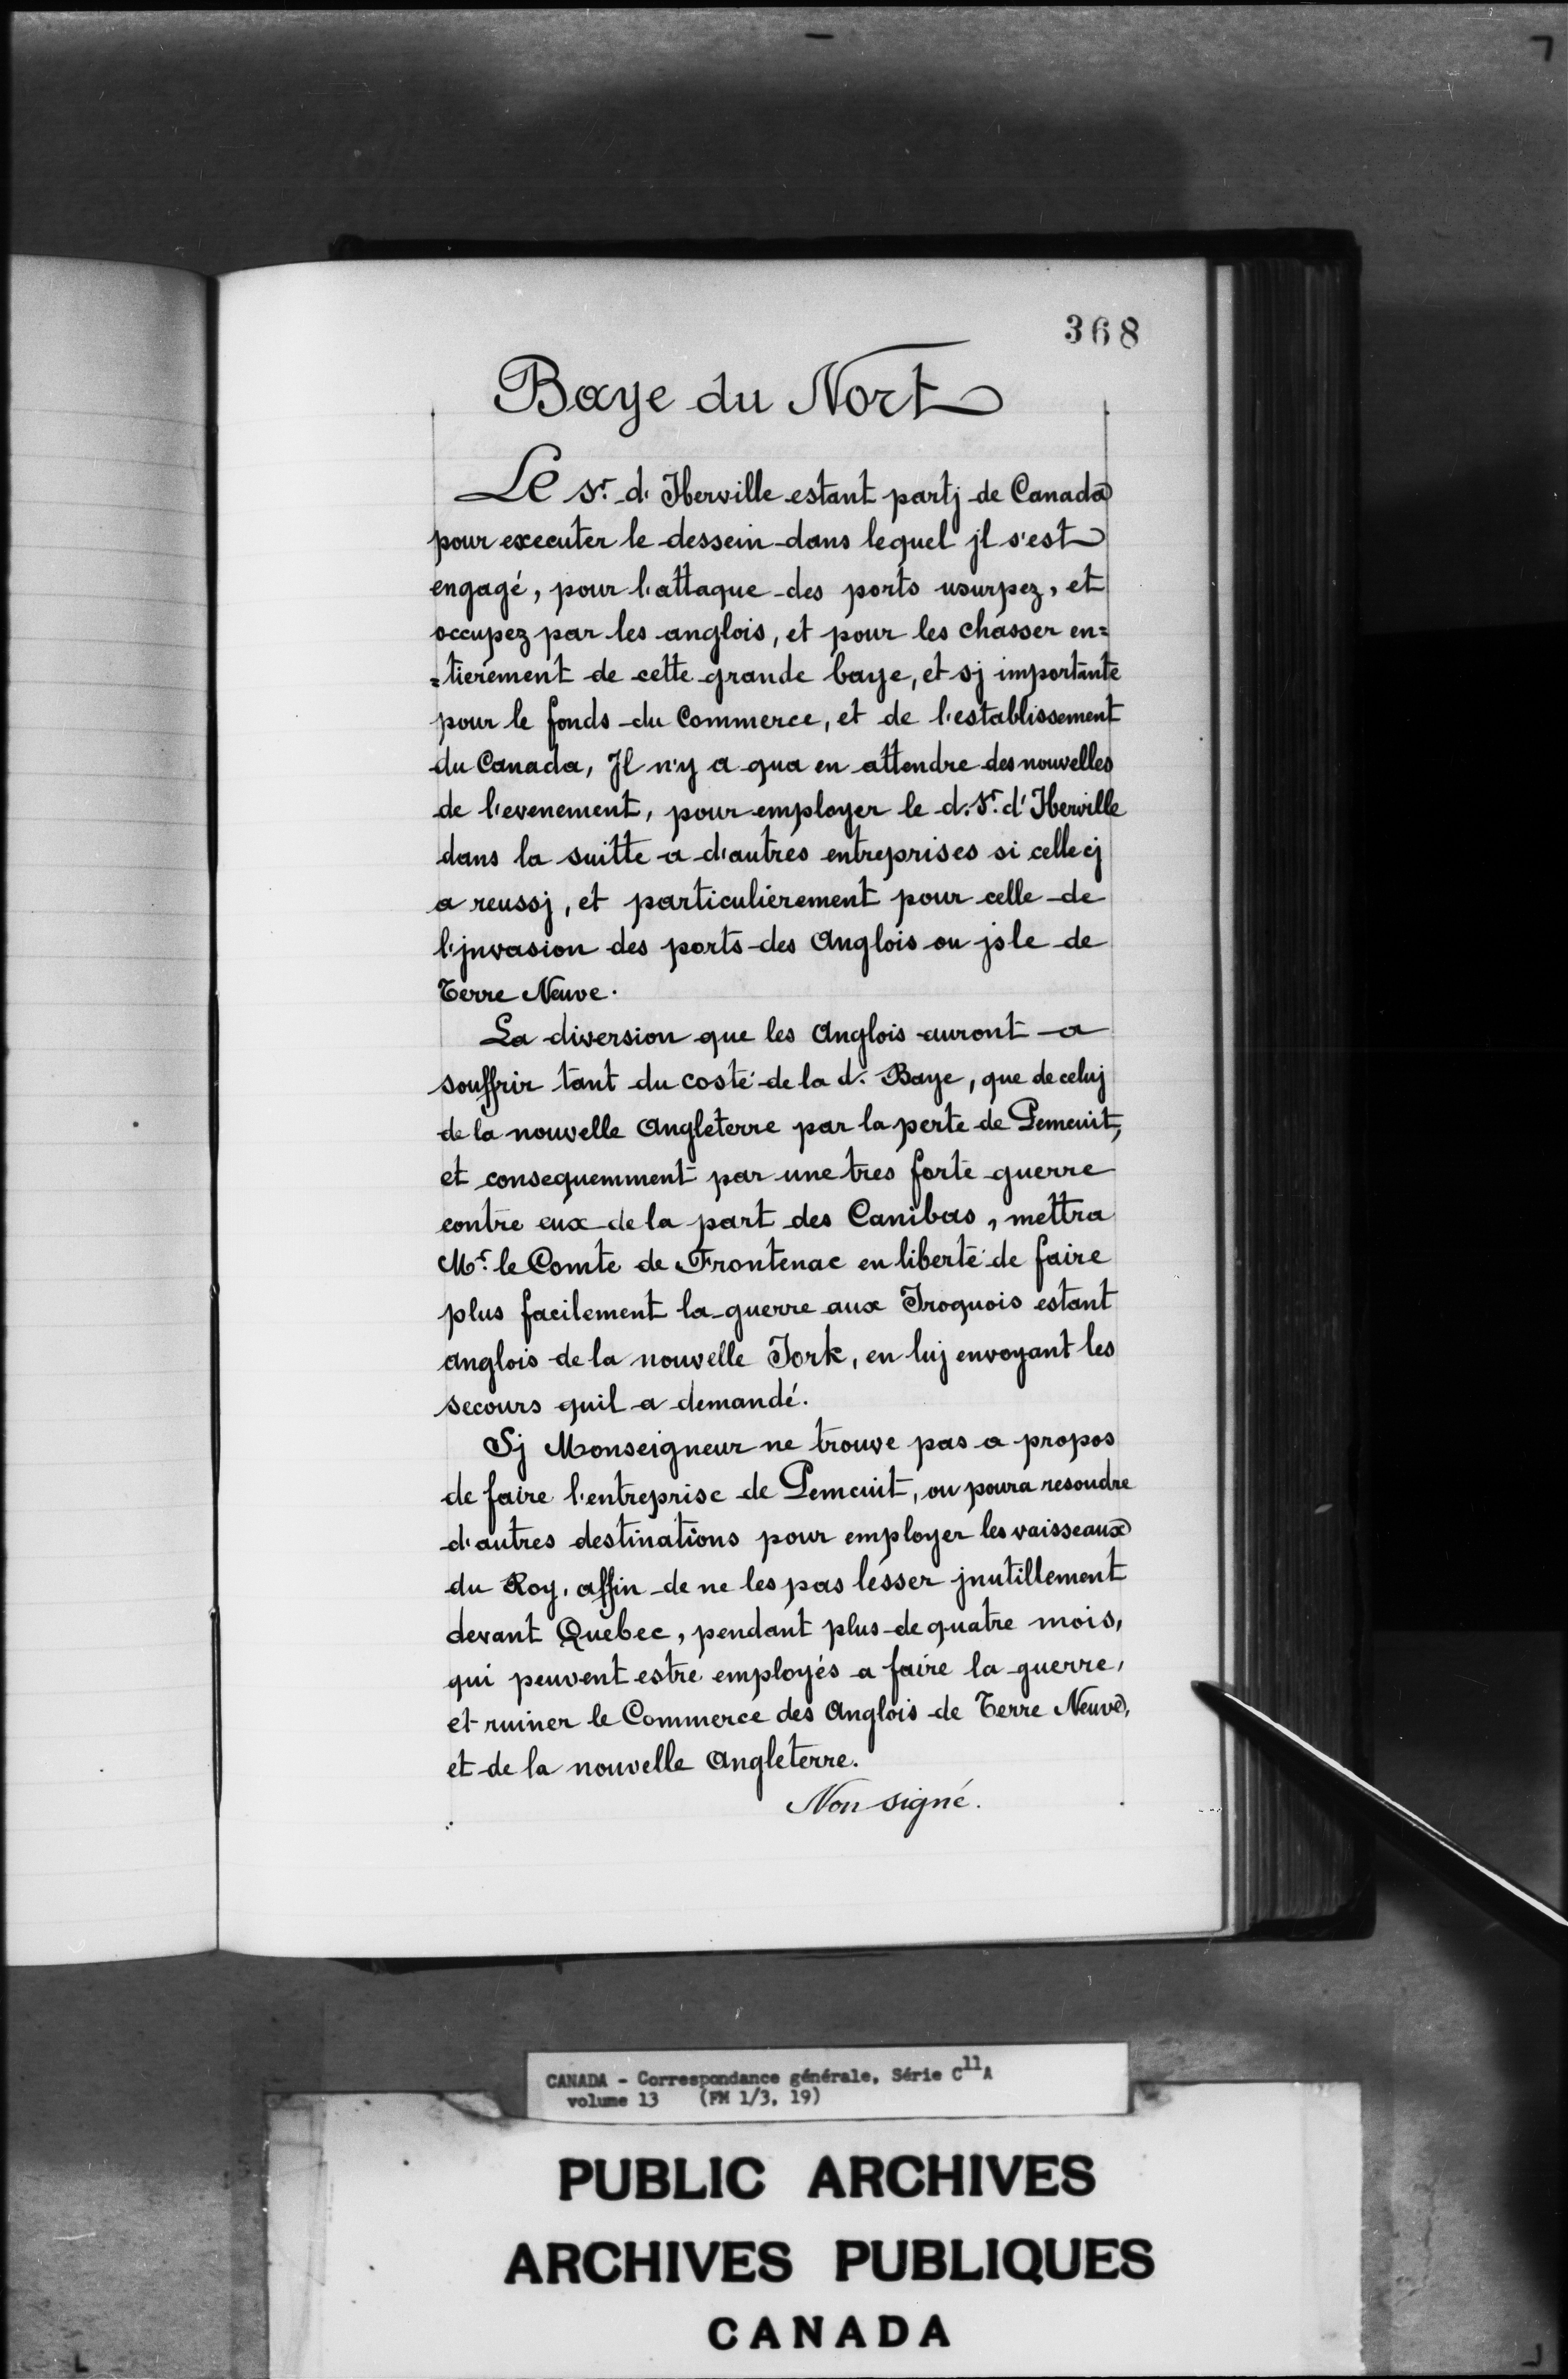 368
Baye du Nort
Le Sr. d'Iberville estant partj de Canada
pour executer le dessein dans lequel jl s'est
engagé, pour l'attaque des ports usurpez, et
occupez par les anglois, et pour les chasser en=
=tierement de cette grande baye, et sj importante
pour le fonds du Commerce, et de l'establissement
du Canada, Jl n'y a qua en attendre des nouvelles
de l'evenement, pour employer le d. Sr. d'Iberville
dans la suitte a d'autres entreprises si cellecj
a reussj, et particulierement pour celle de
l'jnvasion des ports des Anglois ou jsle de
Terre Neuve.
La diversion que les Anglois auront a
souffrir tant du costé de la d. Baye, que de celuj
de la nouvelle Angleterre par la perte de Pemcuit,
et consequemment par une tres forte guerre
contre eux de la part des Canibas, mettra
Mr. le Comte de Frontenac en liberté de faire
plus facilement la guerre aux Iroquois estant
anglois de la nouvelle Jork, en luj envoyant les
secours quil a demandé.
Sj Monseigneur ne trouve pas a propos
de faire l'entreprise de Pemcuit, ou poura resoudre
d'autres destinations pour employer les vaisseaux
du Roy, affin de ne les pas lesser jnutillement
devant Quebec, pendant plus de quatre mois,
qui peuvent estre employés a faire la guerre,
et ruiner le Commerce des Anglois de Terre Neuve,
et de la nouvelle Angleterre.
Non signé.
CANADA - Correspondance générale, Série C11A
volume 13 (FM 1/3, 19)
PUBLIC ARCHIVES
ARCHIVES PUBLIQUES
CANADA